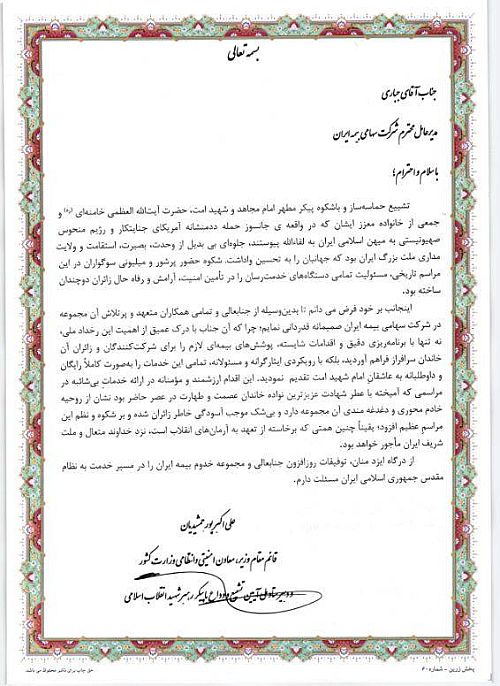 بسمه تعالی
جناب آقای جباری
مدیرعامل محترم شرکت سهامی بیمه ایران
با سلام و احترام؛
تشییع حماسه‌ساز و باشکوه پیکر مطهر امام مجاهد و شهید امت، حضرت آیت‌الله العظمی خامنه‌ای (ره) و
جمعی از خانواده معزز ایشان که در واقعه ی جانسوز حمله ددمنشانه آمریکای جنایتکار و رژیم منحوس
صهیونیستی به میهن اسلامی ایران به لقاءالله پیوستند، جلوه‌ای بی بدیل از وحدت، بصیرت، استقامت و ولایت
مداری ملت بزرگ ایران بود که جهانیان را به تحسین واداشت. شکوه حضور پرشور و میلیونی سوگواران در این
مراسم تاریخی، مسئولیت تمامی دستگاه‌های خدمت‌رسان را در تأمین امنیت، آرامش و رفاه حال زائران دوچندان
ساخته بود.
اینجانب بر خود فرض می دانم تا بدین‌وسیله از جنابعالی و تمامی همکاران متعهد و پرتلاش آن مجموعه
در شرکت سهامی بیمه ایران صمیمانه قدردانی نمایم؛ چرا که آن جناب با درک عمیق از اهمیت این رخداد ملی،
نه تنها با برنامه‌ریزی دقیق و اقدامات شایسته، پوشش‌های بیمه‌ای لازم را برای شرکت‌کنندگان و زائران آن
خاندان سرافراز فراهم آوردید، بلکه با رویکردی ایثارگرانه و مسئولانه، تمامی این خدمات را به‌صورت کاملاً رایگان
و داوطلبانه به عاشقان امام شهید امت تقدیم نمودید. این اقدام ارزشمند و مؤمنانه در ارائه خدمات بی‌شائبه در
مراسمی که آمیخته با عطر شهادت عزیزترین نواده خاندان عصمت و طهارت در عصر حاضر بود نشان از روحیه
خادم محوری و دغدغه مندی آن مجموعه دارد و بی‌شک موجب آسودگی خاطر زائران شده و بر شکوه و نظم این
مراسم عظیم افزود؛ یقیناً چنین همتی که برخاسته از تعهد به آرمان‌های انقلاب است، نزد خداوند متعال و ملت
شریف ایران مأجور خواهد بود.
از درگاه ایزد منان، توفیقات روزافزون جنابعالی و مجموعه خدوم بیمه ایران را در مسیر خدمت به نظام
مقدس جمهوری اسلامی ایران مسئلت دارم.
علی اکبر پورجمشیدیان
قائم مقام وزیر، معاون امنیتی و انتظامی وزارت کشور
و دبیر ستاد آیین تشییع و وداع با پیکر رهبر شهید انقلاب اسلامی
پخش زرین - شماره ۶۰
حق چاپ برای ناشر محفوظ می باشد.